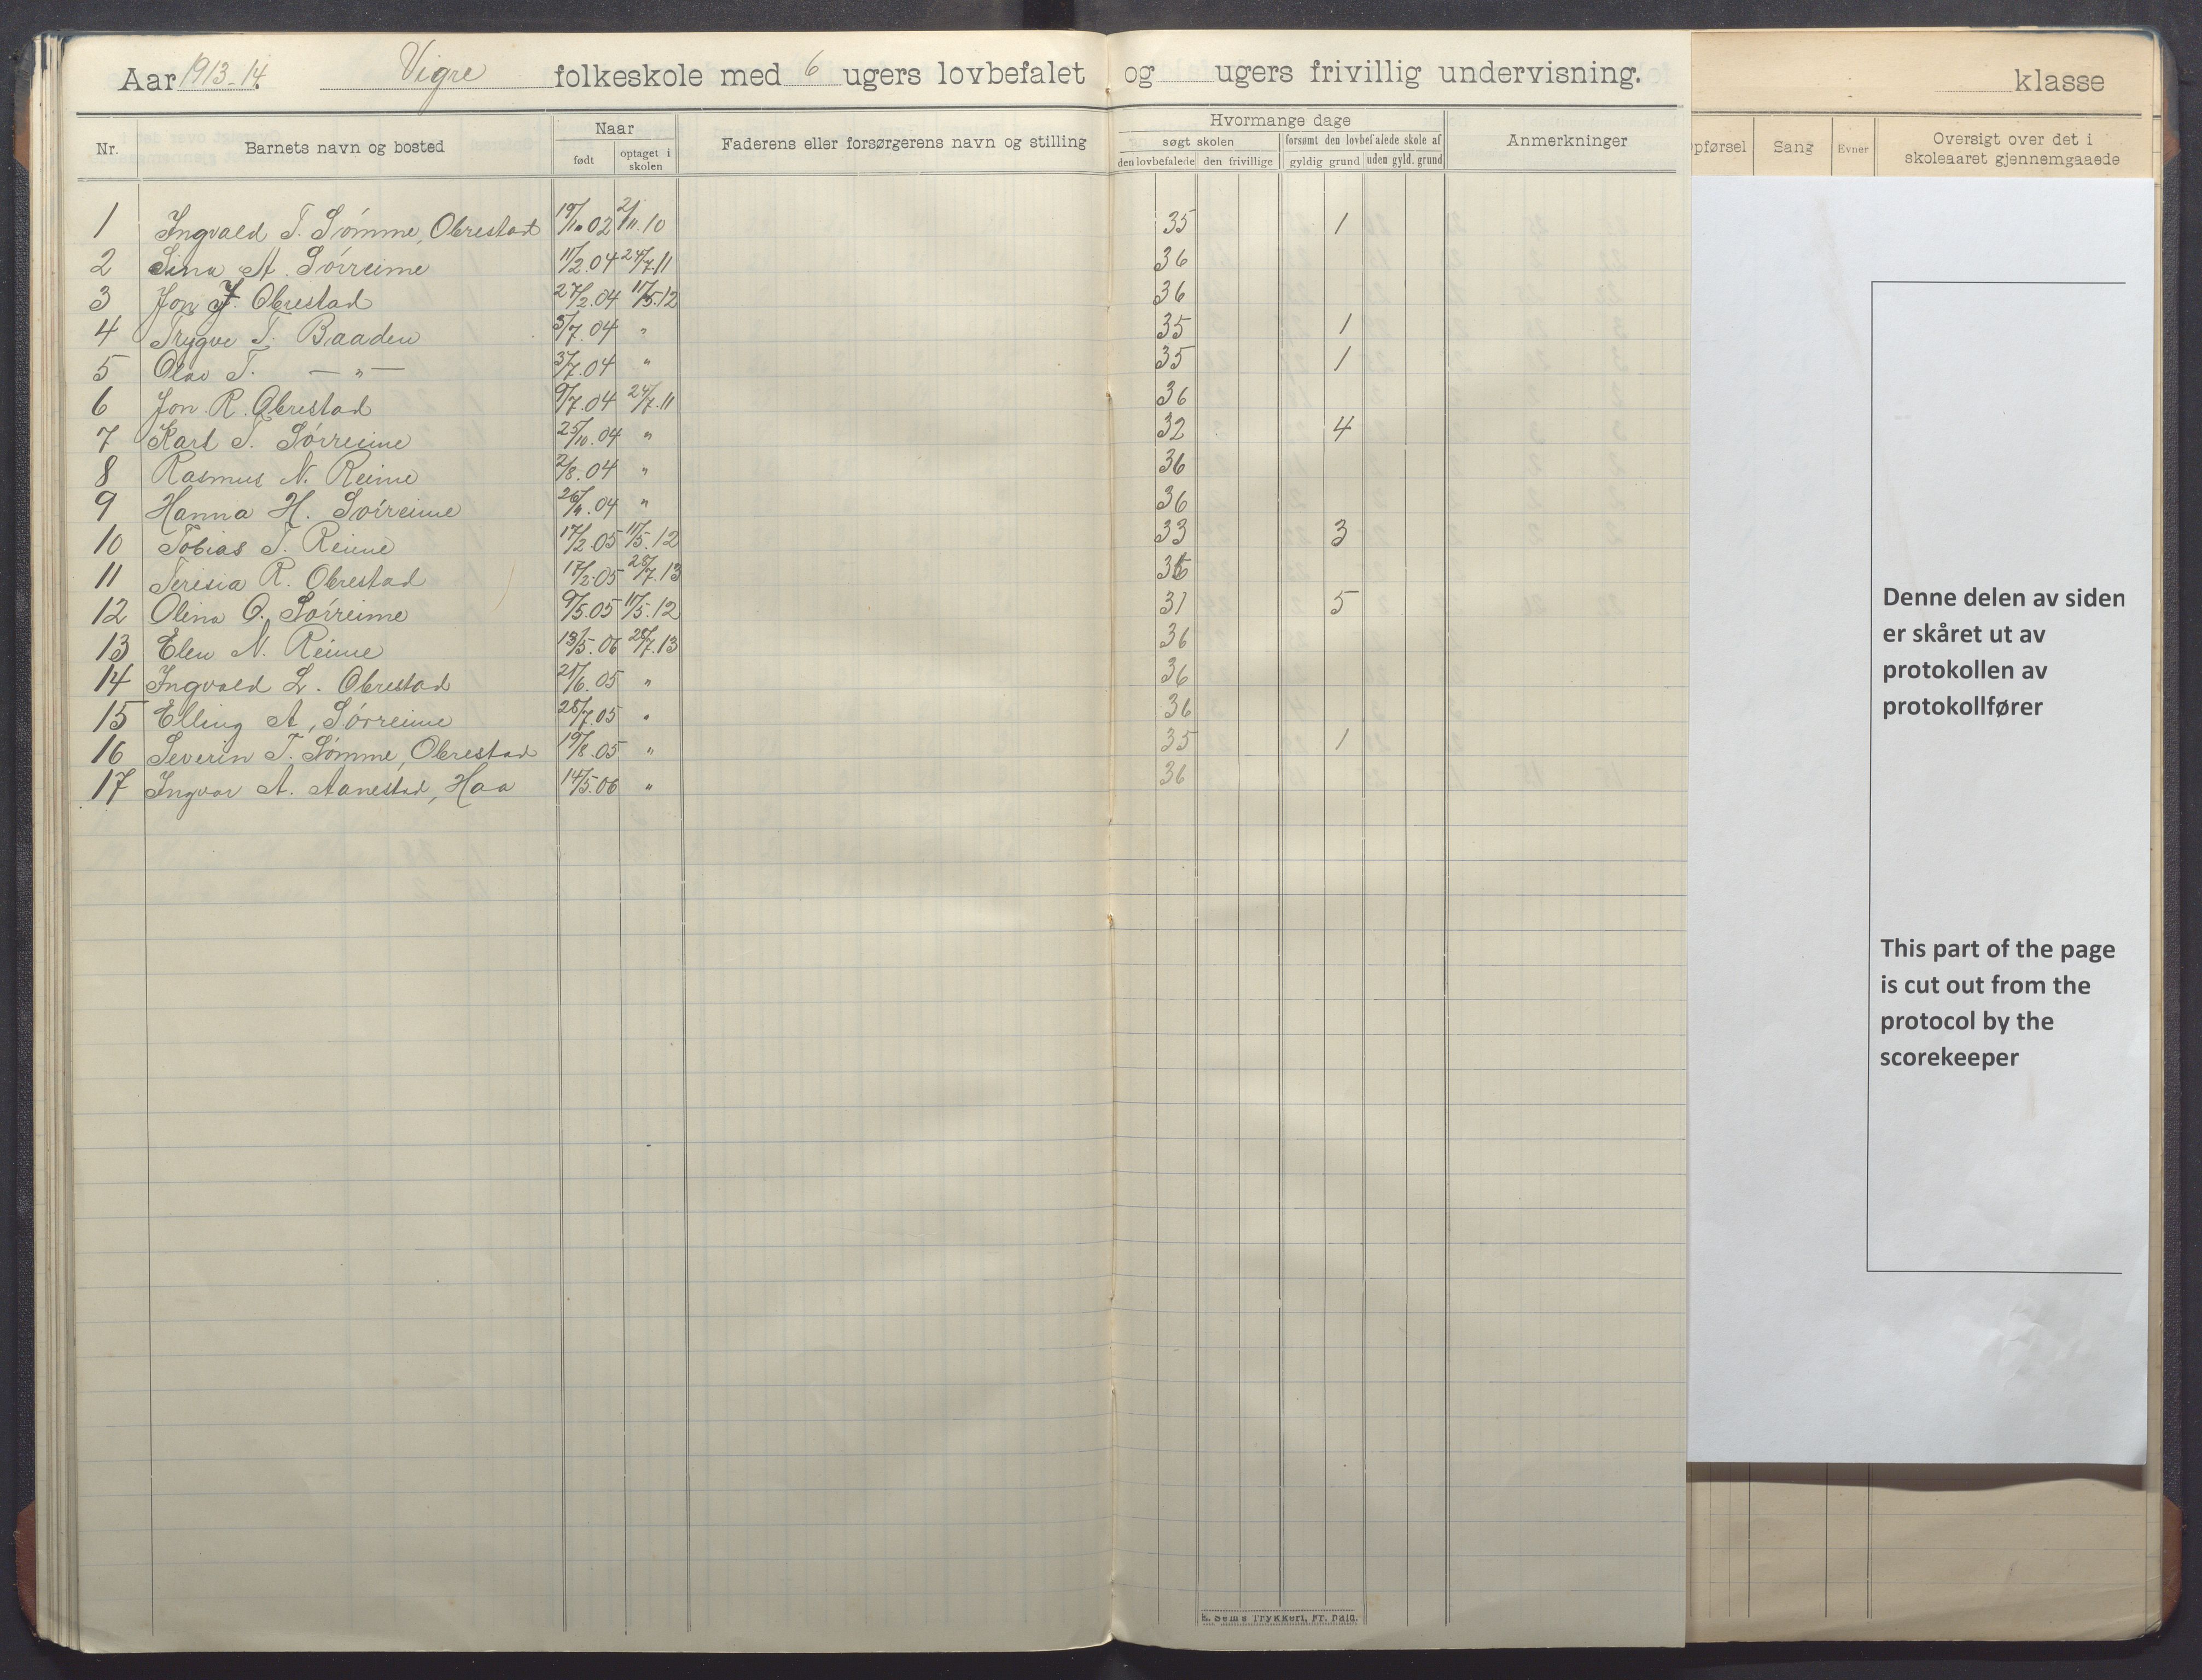 Aar 1913-14. Vigre folkeskole med 6 ugers lovbefalet og ugers frivillig undervisning.
klasse
Nr. Barnets navn og bosted Naar Faderens eller forsørgerens navn og stilling Hvormange dage Anmerkninger
født optaget i skolen søgt skolen forsømt den lovbefalede skole af
den lovbefalede den frivillige gyldig grund uden gyld. grund
pførsel Sang Evner Oversigt over det i skoleaaret gjennemgaaede
1 Ingvald T. Sømme, Obrestad 19/10 02 2/11.10 35 1
2 Sina A. Sørreime 11/2.04 24/7.11 36
3 Jon J. Obrestad 27/2.04 11/5.12 36
4 Trygve T. Baaden 5/7.04 " 35 1
5 Olav T. — " — 3/7.04 " 35 1
6 Jon R. Obrestad 9/7.04 24/7.11 36
7 Karl T. Sørreime 25/10.04 " 32 4
8 Rasmus N. Reime 2/8.04 " 36
9 Hanna H. Sørreime 04 " 36
10 Tobias T. Reime 17/2.05 11/5.12 33 3
11 Teresia R. Obrestad 17/2.05 28/7.13 36
12 Olena O. Sørreime 9/5.05 11/5.12 31 5
13 Elen N. Reime 13/5.06 28/7.13 36
14 Ingvald L. Obrestad 21/6.05 " 36
15 Elling A. Sørreime 28/7.05 " 36
16 Severin T. Sømme, Obrestad 19/8.05 " 35 1
17 Ingvar A. Aanestad, Haa 14/5.06 " 36
Denne delen av siden
er skåret ut av
protokollen av
protokollfører
This part of the page
is cut out from the
protocol by the
scorekeeper